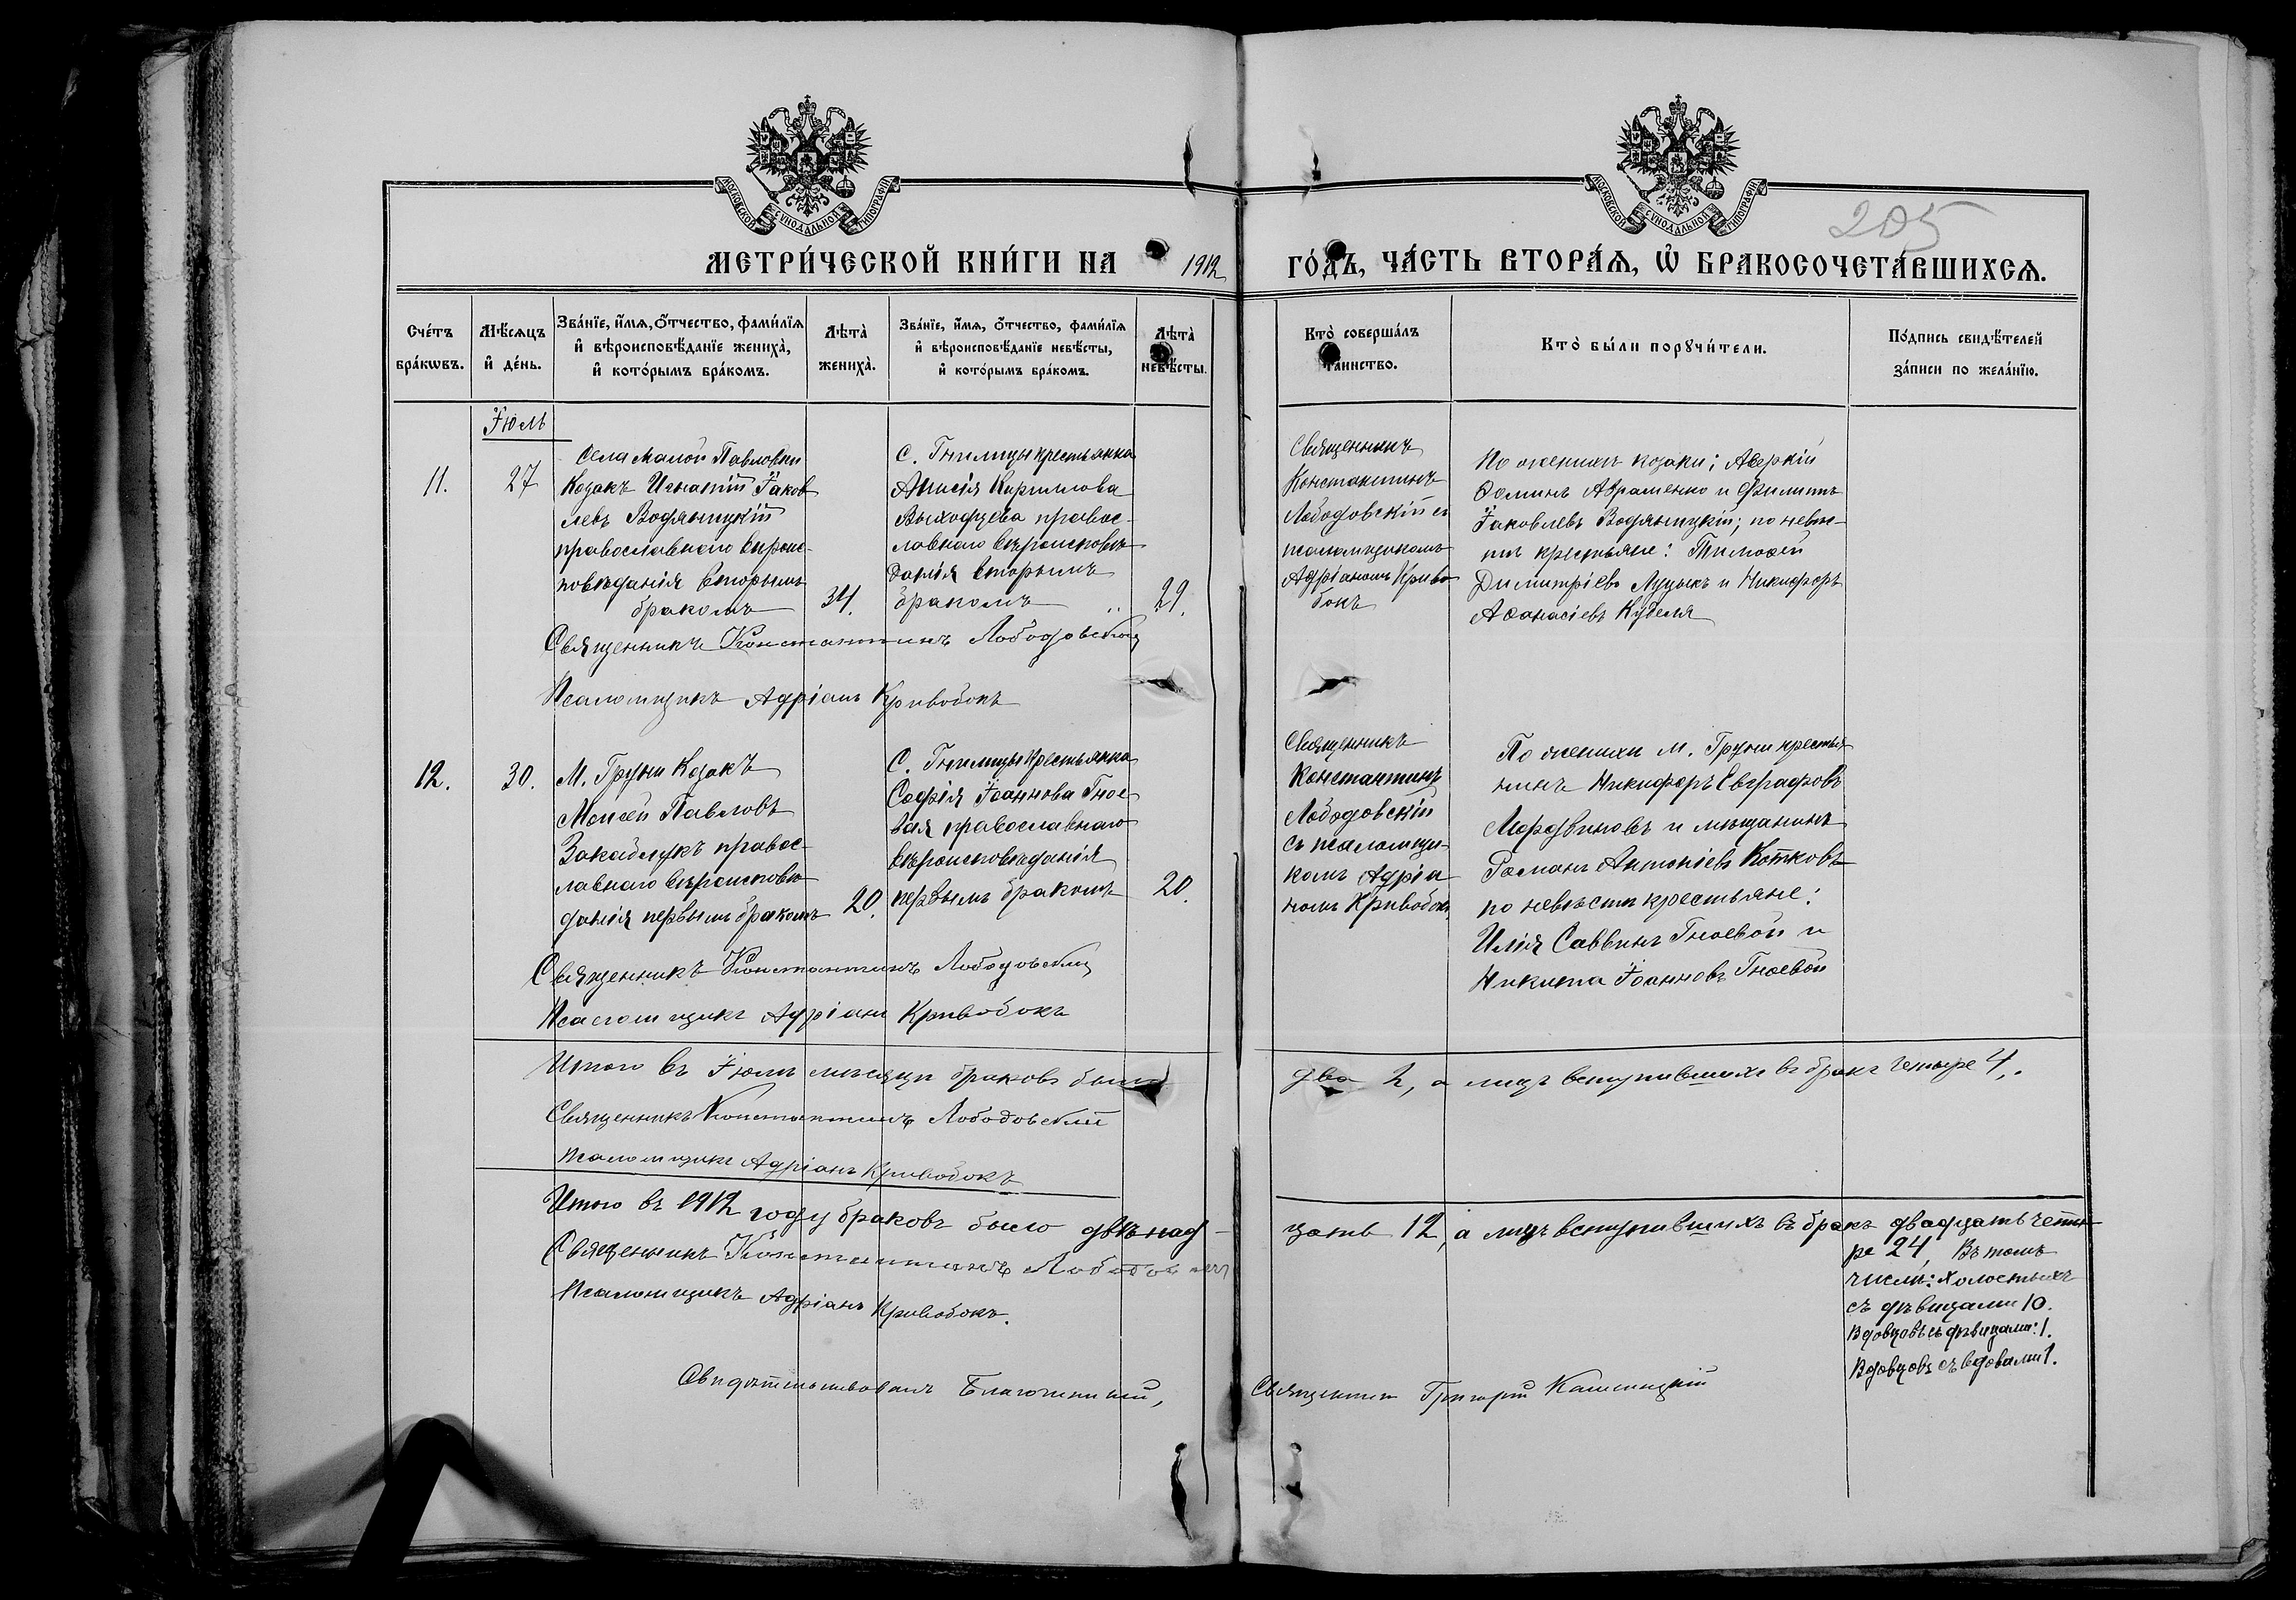 МОСКОВСКОЙ СУНОДАЛЬНОЙ ТИПОГРАФІИ
МОСКОВСКОЙ СУНОДАЛЬНОЙ ТИПОГРАФІИ
205
МЕТРИ́ЧЕСКОЙ КНИ́ГИ НА 1912 ГО́ДЪ, ЧА́СТЬ ВТОРА́Ѧ, Ѡ҆ БРАКОСОЧЕТА́ВШИХСѦ.
Сче́тъ бра́кѡвъ.
Мѣ́сѧцъ и҆ де́нь.
Зва́нїе, и҆́мѧ, ѻ҆́тчество, фами́лїѧ и҆ вѣроисповѣ́данїе жениха̀, и҆ кото́рымъ бра́комъ.
Лѣта̀ жениха̀.
Зва́нїе, и҆́мѧ, ѻ҆́тчество, фами́лїѧ и҆ вѣроисповѣ́данїе невѣ́сты, и҆ кото́рымъ бра́комъ.
Лѣта̀ невѣ́сты.
Кто̀ соверша́лъ таинство.
Кто̀ бы́ли порꙋчи́тели.
По́дпись свидѣ́телей за́писи по жела́нїю.
Іюль
11.
27
Села Малой Павловки
Козакъ Игнатій Іаков
левъ Водяницкій
православнаго вѣроис-
повѣданія вторымъ
бракомъ
34.
С. Гнилицы крестьянка
Анисія Кириллова
Выходцева правос-
лавнаго вѣроисповѣ-
данія вторымъ
бракомъ
29.
Священникъ
Константинъ
Лободовскій съ
псаломщикомъ
Адріаномъ Криво
бокъ
По женихѣ козаки; Аверкій
Ѳоминъ Авраменко и Филиппъ
Іаковлевъ Водяницкій; по невѣс-
тѣ крестьяне: Тимоѳей
Димитріевъ Луцыкъ и Никифоръ
Аѳанасіевъ Кубеля
Священникъ Константинъ Лободовскій
Псаломщикъ Адріанъ Кривобокъ
12.
30.
М. Груни Козакъ
Моисей Павловъ
Закаблукъ правос-
лавнаго вѣроисповѣ
данія первымъ бракомъ
20.
С. Гнилицы Крестьянка
Софія Іоаннова Гное-
вая православнаго
вѣроисповѣданія
первымъ бракомъ
20.
Священникъ
Константинъ
Лободовскій
съ псаломщи-
комъ Адріа
номъ Кривобокъ
По женихѣ М. Груни крестья
нинъ Никифоръ Евграфовъ
Мордвиновъ и мѣщанинъ
Романъ Антоніевъ Котковъ
по невѣстѣ крестьяне:
Илія Саввинъ Гноевой и
Никита Іоанновъ Гноевой
Священникъ Константинъ Лободовскій
Псаломщикъ Адріанъ Кривобокъ
Итого въ Іюлѣ мѣсяцѣ браковъ было два 2, а лицъ вступившихъ въ бракъ четыре 4.
Священникъ Константинъ Лободовскій
Псаломщикъ Адріанъ Кривобокъ
Итого въ 1912 году браковъ было двѣнад-
цать 12, а лицъ вступившихъ въ бракъ двадцать четы-
ре 24, Въ томъ
числѣ: холостыхъ
съ дѣвицами 10.
Вдовцовъ съ дѣвицами: 1.
Вдовцовъ съ вдовами 1.
Священникъ Константинъ Лободовскій
Псаломщикъ Адріанъ Кривобокъ.
Свидѣтельствовалъ Благочинный, Священникъ Григорій